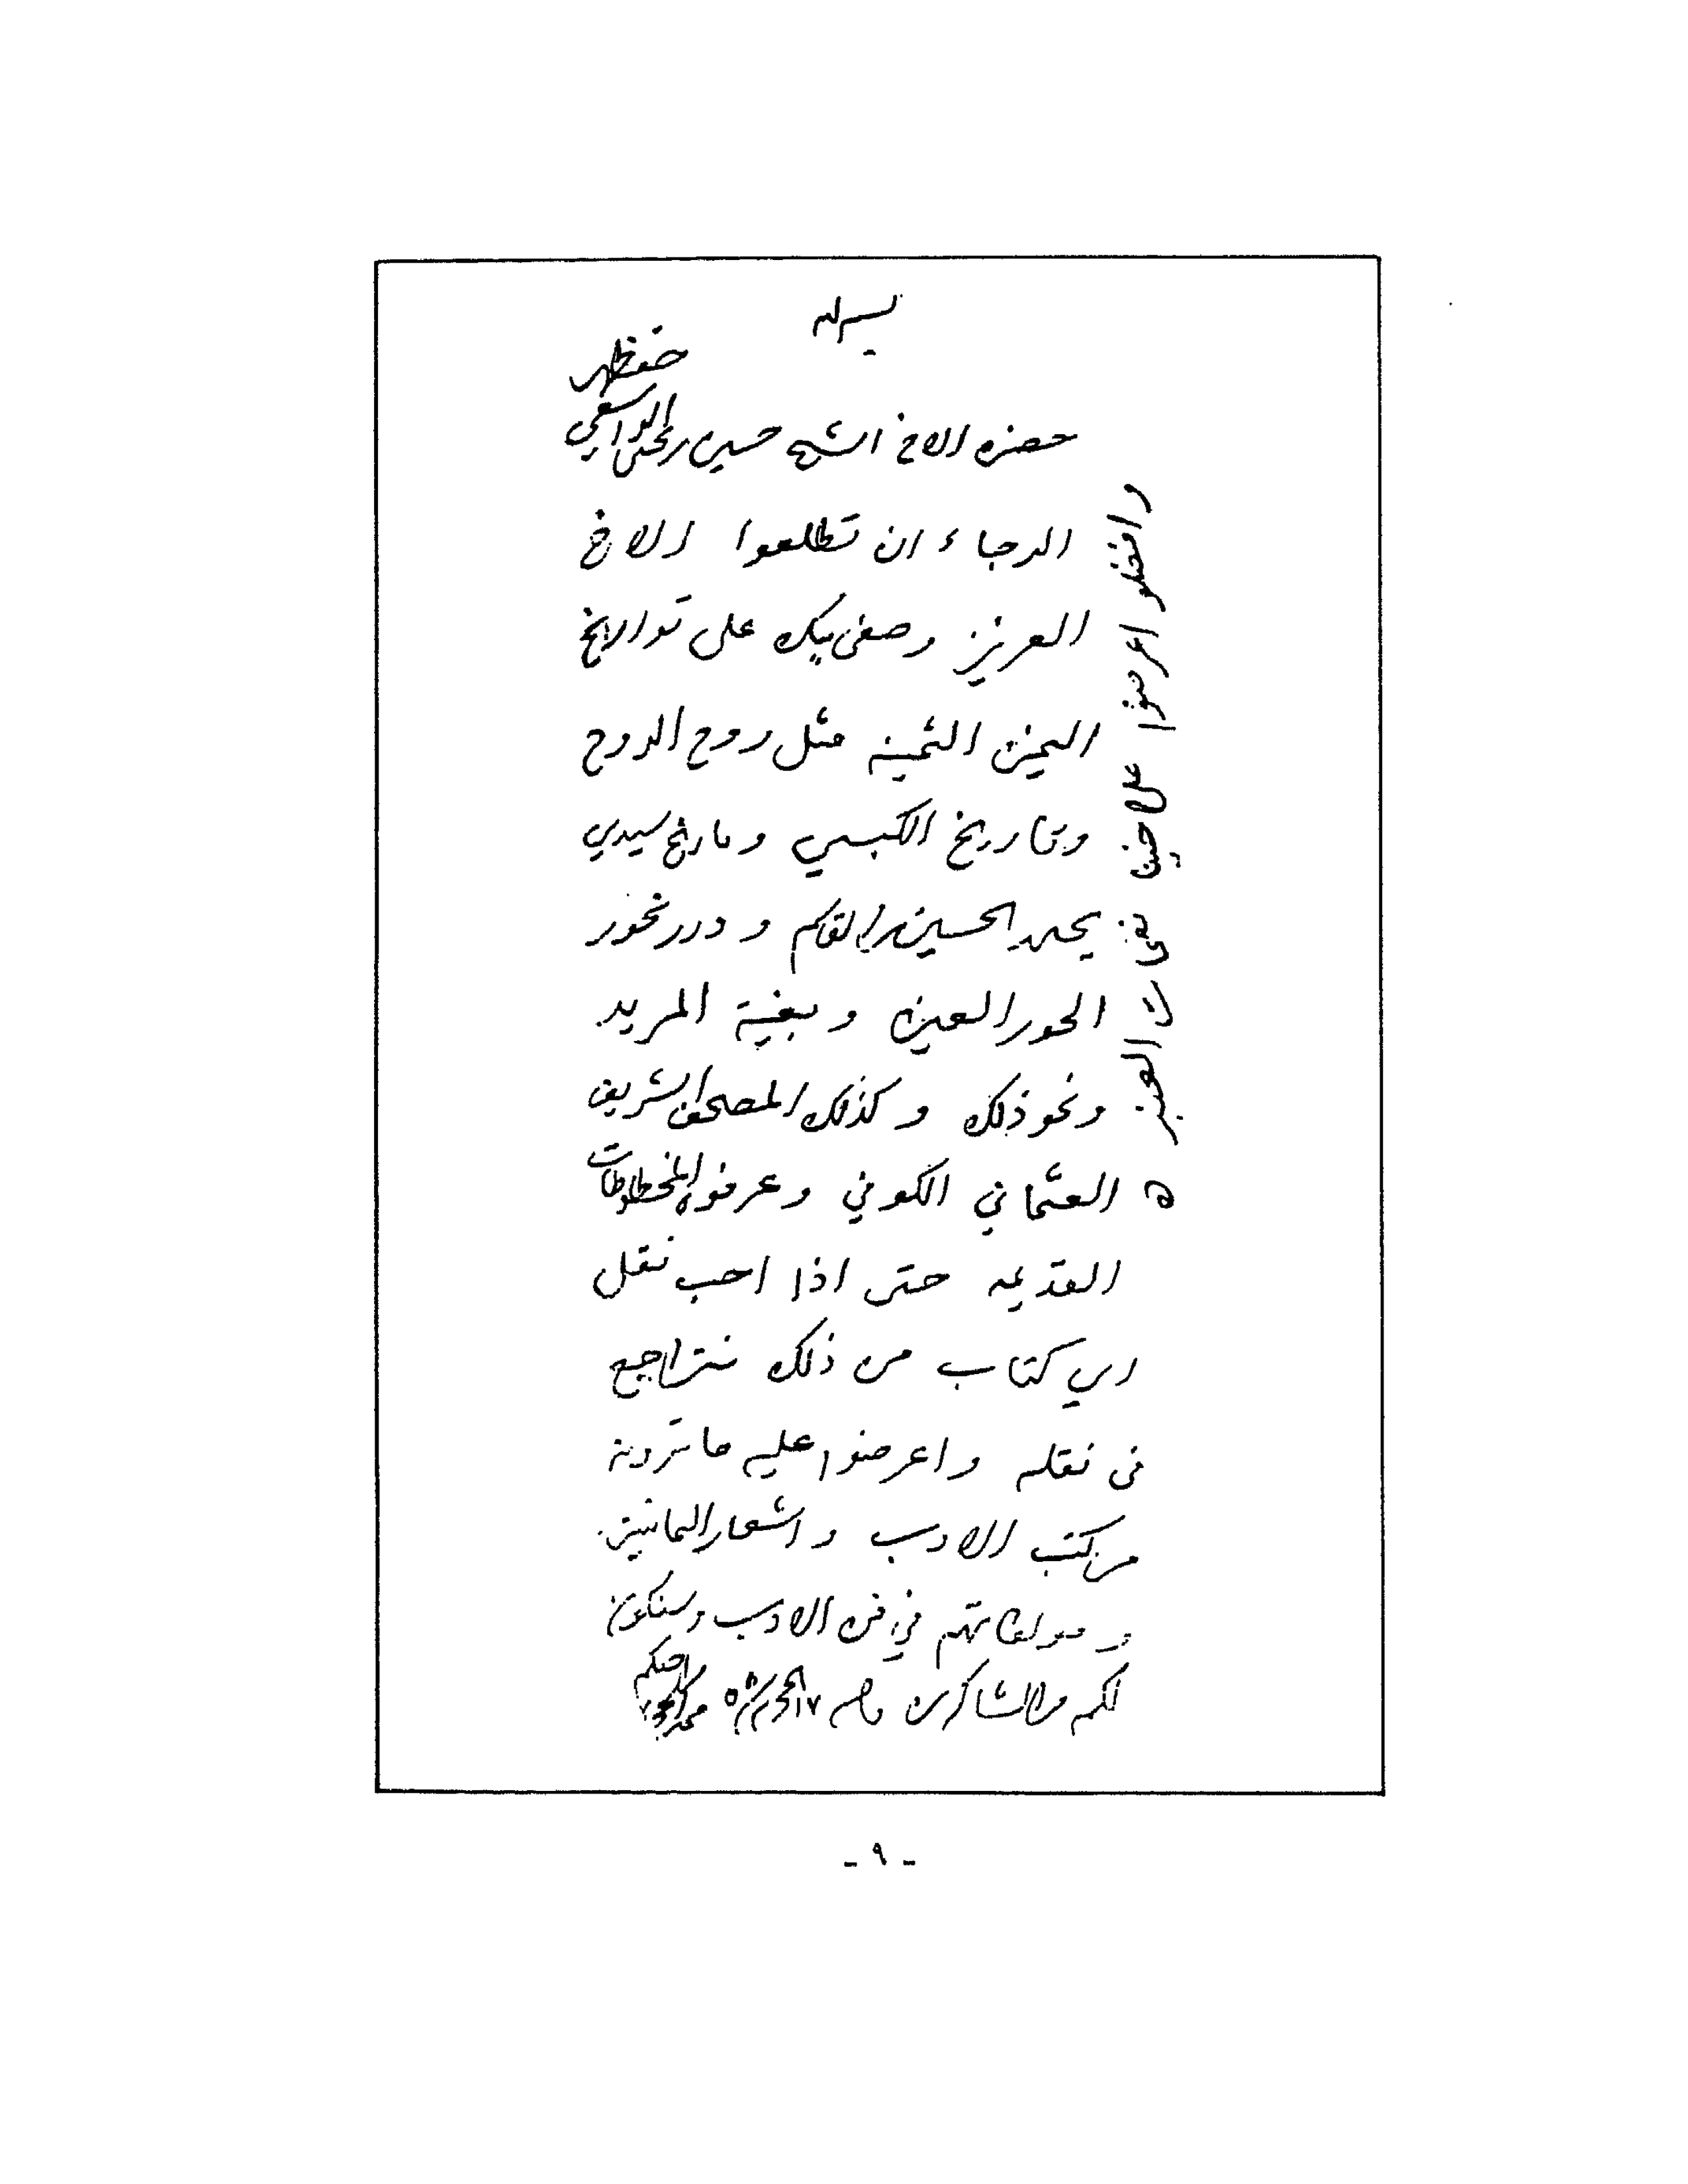 بسم الله
حضرة الاخ الشيخ حسين يحيى الواسعي حفظه الله
الرجاء ان تطلعوا الاخ
العزيز وصفي بيك على تواريخ
اليمن الثمينه مثل روح الروح
وتاريخ الكبسي وتاريخ سيدي
يحيى الحسين القاسم و درر نحور
الحور العين و بغية المريد
ونحو ذلك وكذلك المصحف الشريف
العثماني الكوفي وعرفوه المخطوطات
القديمه حتى اذا احب نقل
اي كتاب من ذلك نتراجع
في نقله واعرضوا عليه ما ترونه
من كتب الادب واشعار اليمانيين
ومولفاتهم في فن الادب وسنكون
لكم من الشاكرين ١٧ محرم
اخيكم محمد
وافضلوا اعرضوا على
العنبر
- ٩ -